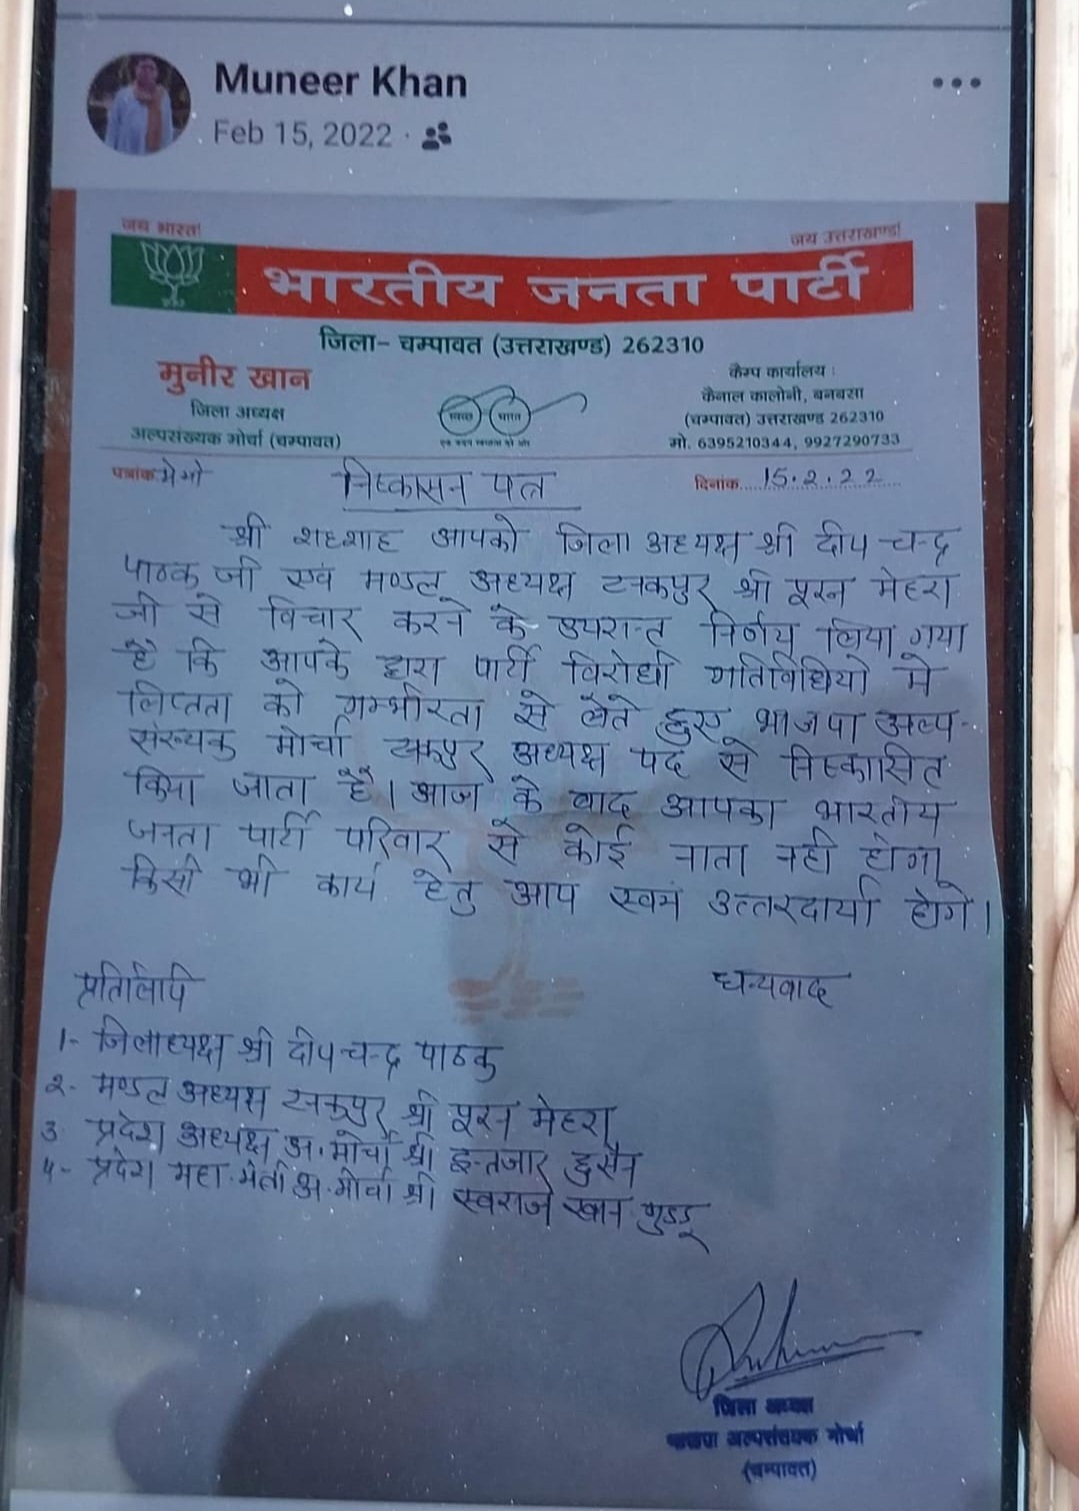 Muneer Khan
Feb 15, 2022
जय भारत!
जय उत्तराखण्ड!
भारतीय जनता पार्टी
जिला- चम्पावत (उत्तराखण्ड) 262310
मुनीर खान
जिला अध्यक्ष
अल्पसंख्यक मोर्चा (चम्पावत)
स्वच्छ भारत
एक कदम स्वच्छता की ओर
कैम्प कार्यालय :
कैनाल कालोनी, बनबसा
(चम्पावत) उत्तराखण्ड 262310
मो. 6395210344, 9927290733
पत्रांक मेमो
निष्कासन पत्र
दिनांक 15.2.22
श्री शहशाह आपको जिला अध्यक्ष श्री दीप चन्द्र
पाठक जी एवं मण्डल अध्यक्ष टनकपुर श्री पूरन मेहरा
जी से विचार करने के उपरान्त निर्णय लिया गया
है कि आपके द्वारा पार्टी विरोधी गतिविधियो मे
लिप्तता को गम्भीरता से लेते हुए भाजपा अल्प-
संख्यक मोर्चा टनकपुर अध्यक्ष पद से निष्कासित
किया जाता है। आज के बाद आपका भारतीय
जनता पार्टी परिवार से कोई नाता नही होगा
किसी भी कार्य हेतु आप स्वयं उत्तरदायी होगे।
प्रतिलिपि
धन्यवाद
1- जिलाध्यक्ष श्री दीप चन्द्र पाठक
2- मण्डल अध्यक्ष टनकपुर श्री पूरन मेहरा
3 प्रदेश अध्यक्ष अ. मोर्चा श्री इन्तजार हुसैन
4- प्रदेश महा. मंत्री अ. मोर्चा श्री स्वराज खान गुड्डू
जिला अध्यक्ष
भाजपा अल्पसंख्यक मोर्चा
(चम्पावत)